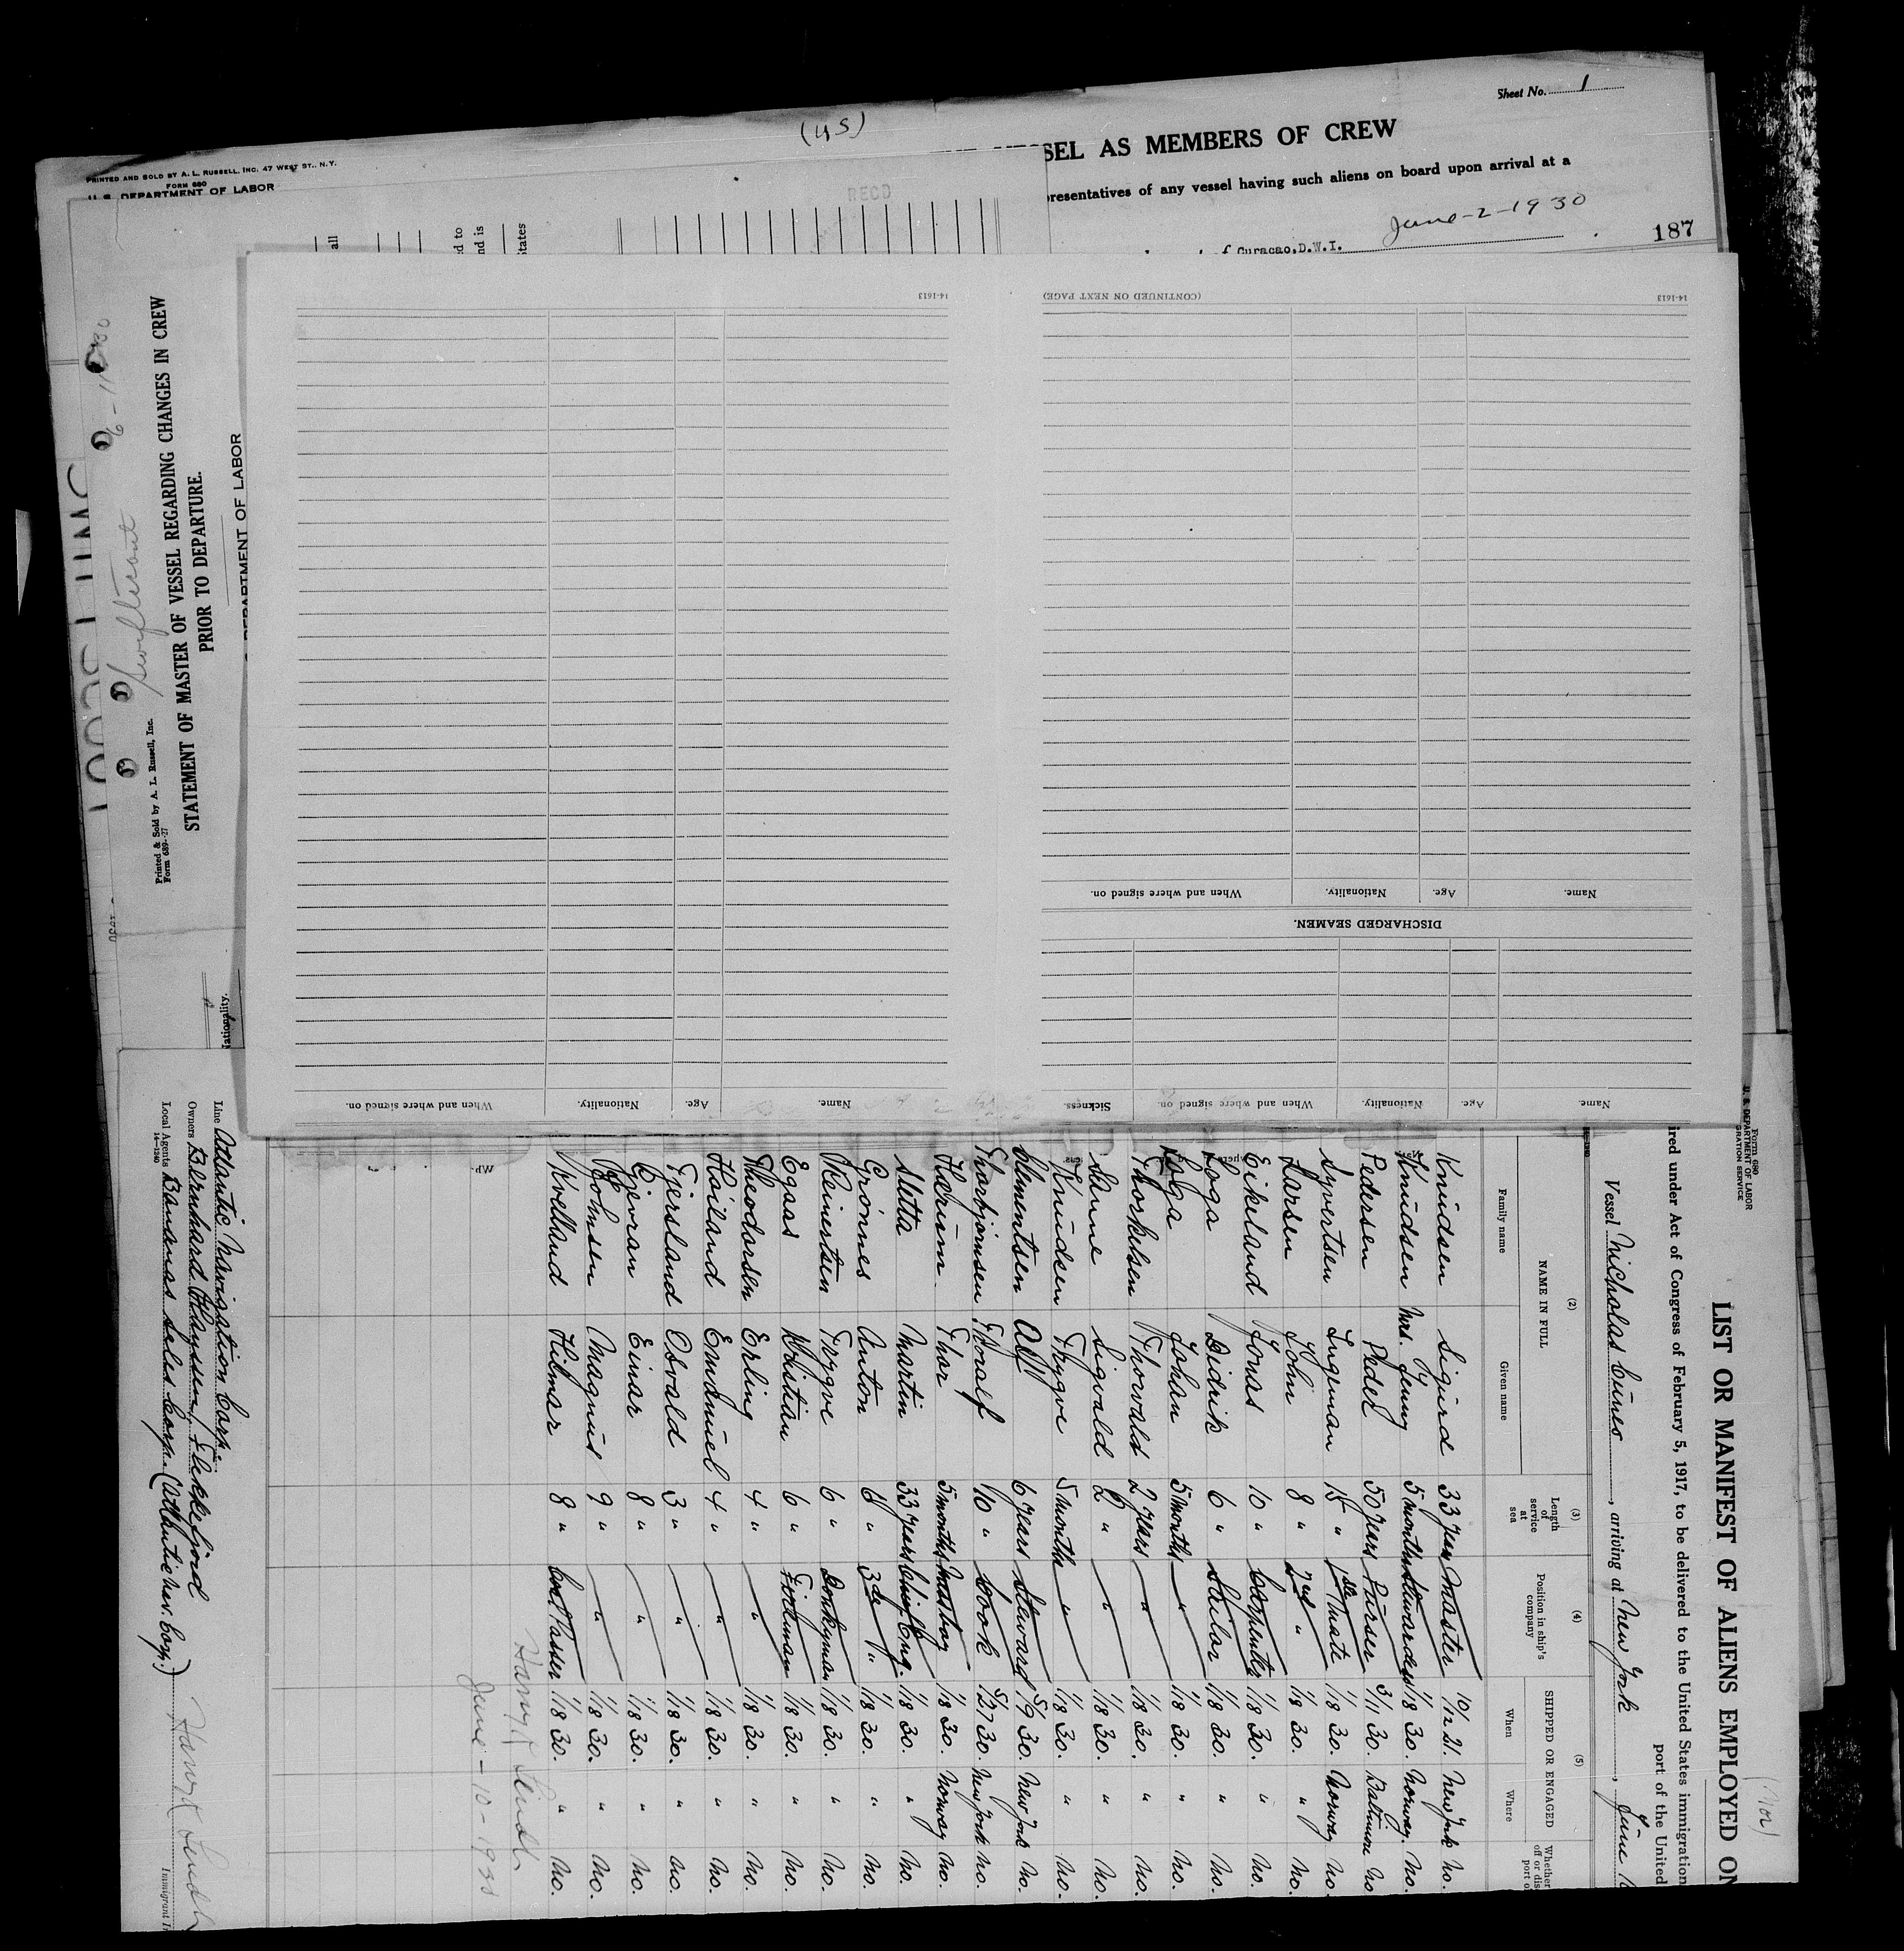 Sheet No. 1
(US)
SEL AS MEMBERS OF CREW
presentatives of any vessel having such aliens on board upon arrival at a
June-2-1930
187
f Curacao,D.W.I.
PRINTED AND SOLD BY A. L. RUSSELL, INC. 47 WEST ST., N.Y.
FORM 680
U. S. DEPARTMENT OF LABOR
RECD
all
ed to
nd is
States
6-11-30
Printed & Sold by A. L. Russell, Inc.
Form 689-27
STATEMENT OF MASTER OF VESSEL REGARDING CHANGES IN CREW
PRIOR TO DEPARTURE.
DEPARTMENT OF LABOR
Nationality.
14-1613
(CONTINUED ON NEXT PAGE)
14-1613
Name. Age. Nationality. When and where signed on.
DISCHARGED SEAMEN.
Name. Age. Nationality. When and where signed on. Sickness.
Name. Age. Nationality. When and where signed on.
Form 680
U. S. DEPARTMENT OF LABOR
GRATION SERVICE
(Nor)
LIST OR MANIFEST OF ALIENS EMPLOYED ON
ired under Act of Congress of February 5, 1917, to be delivered to the United States immigration
port of the United
Vessel Nicholas Cuneo, arriving at New York, June
(2) (3) (4) (5)
NAME IN FULL Length of service at sea Position in ship's company SHIPPED OR ENGAGED Whether
Family name Given name When Where
Knudsen Sigurd 33 years Master 10/12 21. New York No.
Knudsen Mrs. Jenny 5 months Stwardess 1/18 30. Norway. No.
Pedersen Peder 50 years Purser 3/11 30. Baltimore No
Syvertsen Ingeman 15 " 1st Mate 1/18 30. Norway No.
Larsen John 8 " 2nd " 1/18 30. " No.
Eikeland Jonas 10 " Carpenter 1/18 30. " No.
Loga Didrik 6 " Sailor 1/18 30. " No.
Loga Johan 5 months " 1/18 30. " No.
Thorkelsen Thorvald 2 years " 1/18 30. " No.
Sanne Sigvald 2 " " 1/18 30. " No.
Knudsen Trygve 5 months " 1/18 30. " No.
Klementsen Alf 6 years Steward 5/9 30. New York No.
Thorbjornsen Thoralf 10 " Cook 5/27 30. New York No.
Hærum Thor 5 months Messboy 1/18 30. Norway No.
Sletta Martin 33 years Chief Eng. 1/18 30. " No.
Grønnes Anton 8 " 3de " 1/18 30. " No.
Reinertsen Trygve 6 " Donkeyman 1/18 30. " No.
Egaas Kristian 6 " Fireman 1/18 30. " No.
Theodorsen Erling 4 " " 1/18 30. " No.
Høiland Emanuel 4 " " 1/18 30. " No.
Fjersland Osvald 3 " " 1/18 30. " No.
Gjevran Einar 8 " " 1/18 30. " No.
Johnsen Magnus 9 " " 1/18 30. " No.
Kvelland Hilmar 8 " Coal Passer 1/18 30. " No.
June-10-1930
Line Atlantic Navigation Corp.
Owners Bernhard Hanssen, Flekkefjord
Local Agents Bananas Sales Corp. (Atlantic Nav. Corp.)
14-1240
Immigrant